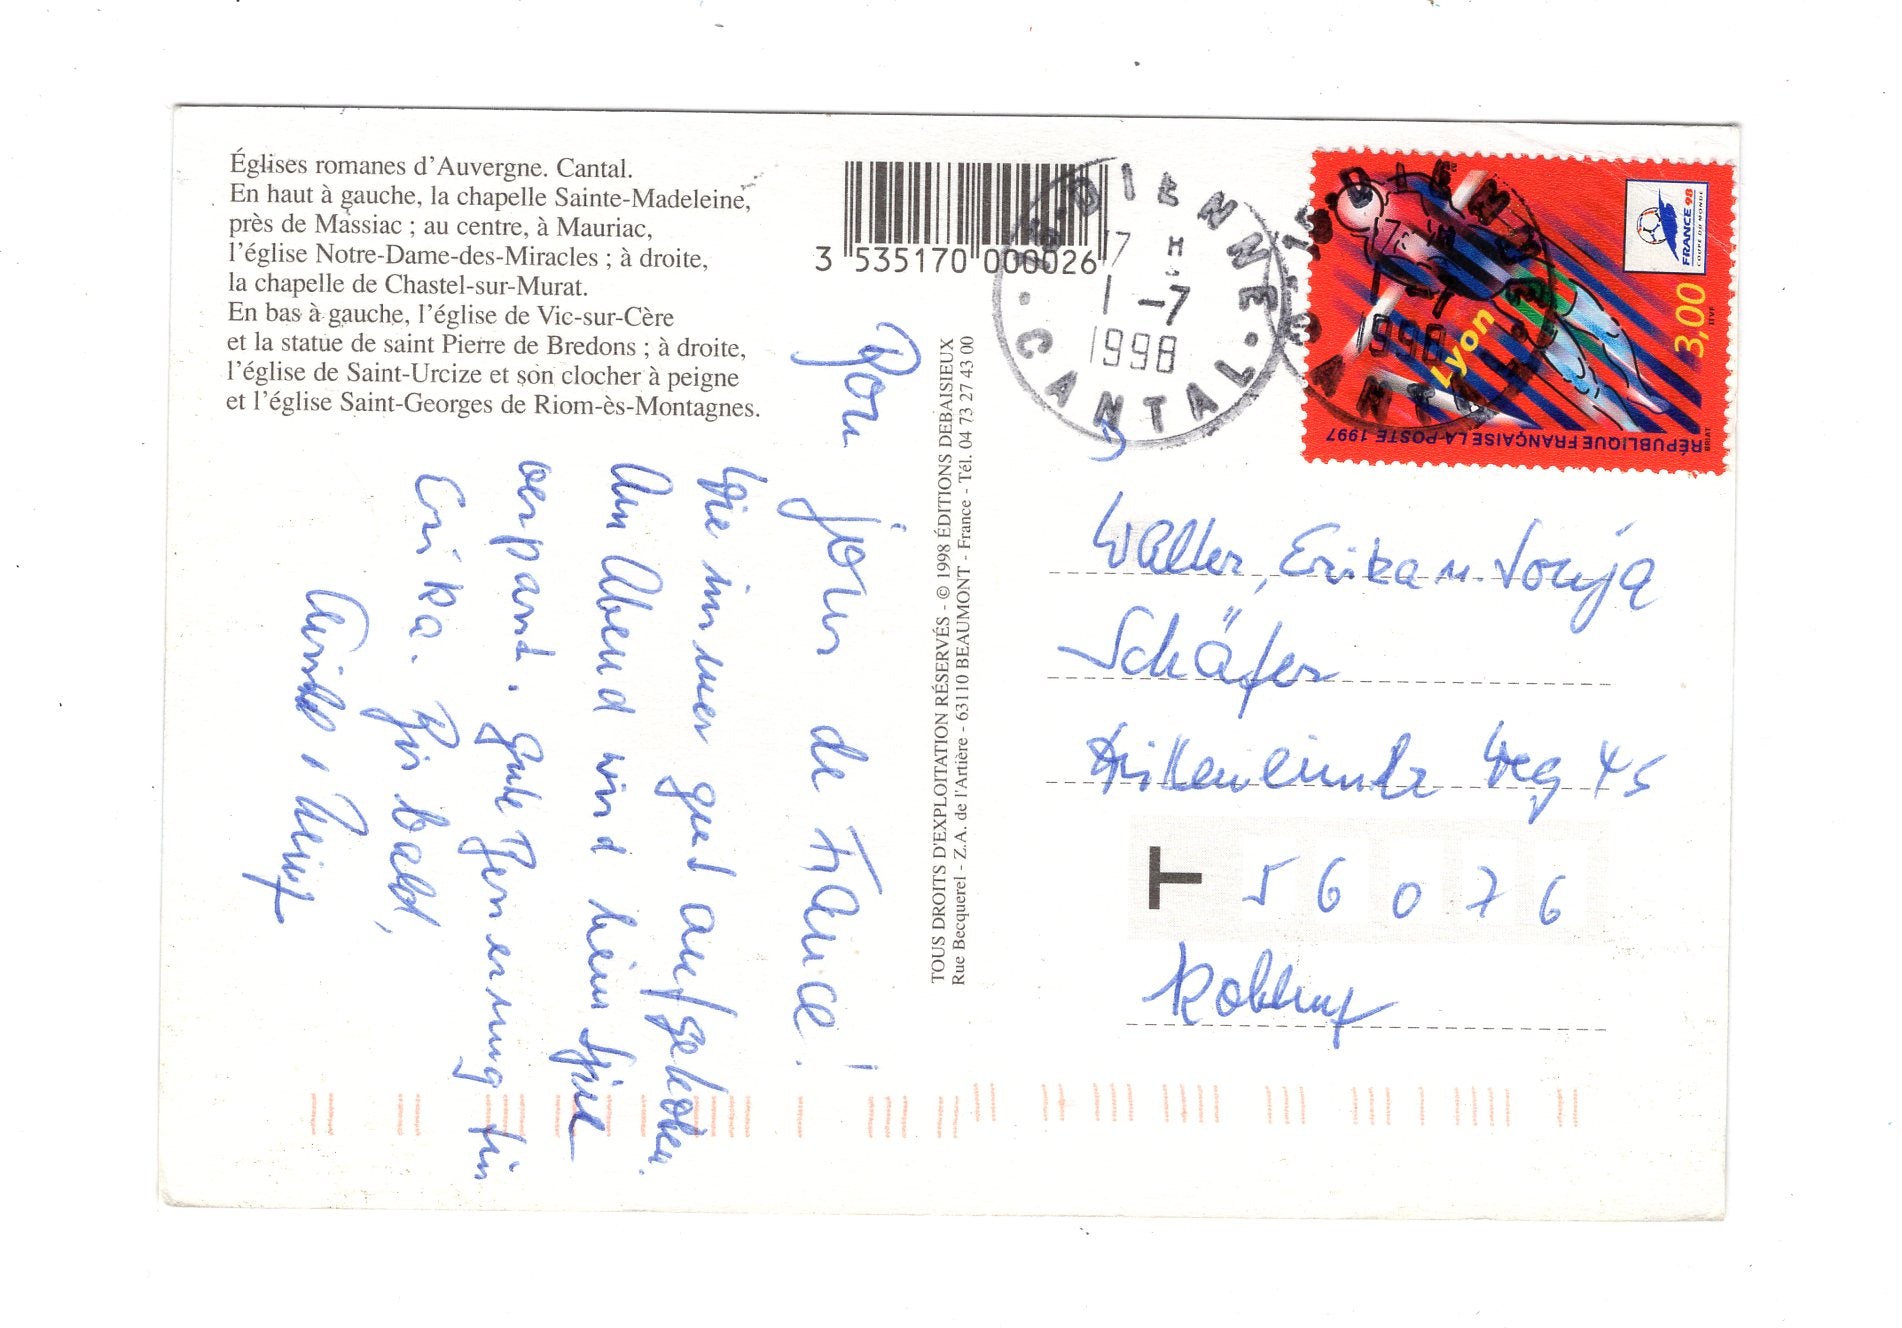 Églises romanes d'Auvergne. Cantal.
En haut à gauche, la chapelle Sainte-Madeleine,
près de Massiac ; au centre, à Mauriac,
l'église Notre-Dame-des-Miracles ; à droite,
la chapelle de Chastel-sur-Murat.
En bas à gauche, l'église de Vic-sur-Cère
et la statue de saint Pierre de Bredons ; à droite,
l'église de Saint-Urcize et son clocher à peigne
et l'église Saint-Georges de Riom-ès-Montagnes.
3 535170 000026
Bon jour de France!
Wie immer gut aufgehoben.
Am Abend wird kein Spiel
verpasst. Gute Besserung für
Erika. Bis bald,
TOUS DROITS D'EXPLOITATION RÉSERVÉS - © 1998 ÉDITIONS DEBAISIEUX
Rue Becquerel - Z.A. de l'Artière - 63110 BEAUMONT - France - Tél. 04 73 27 43 00
DIENNE
7 H
1 -7
1998
CANTAL
DIENNE
7 H
1 -7
1998
CANTAL
FRANCE 98
COUPE DU MONDE
3,00
Lyon
RÉPUBLIQUE FRANÇAISE LA POSTE 1997
Walter, Erika u. Sonja
Schäfer
Weg 45
T 56076
Koblenz